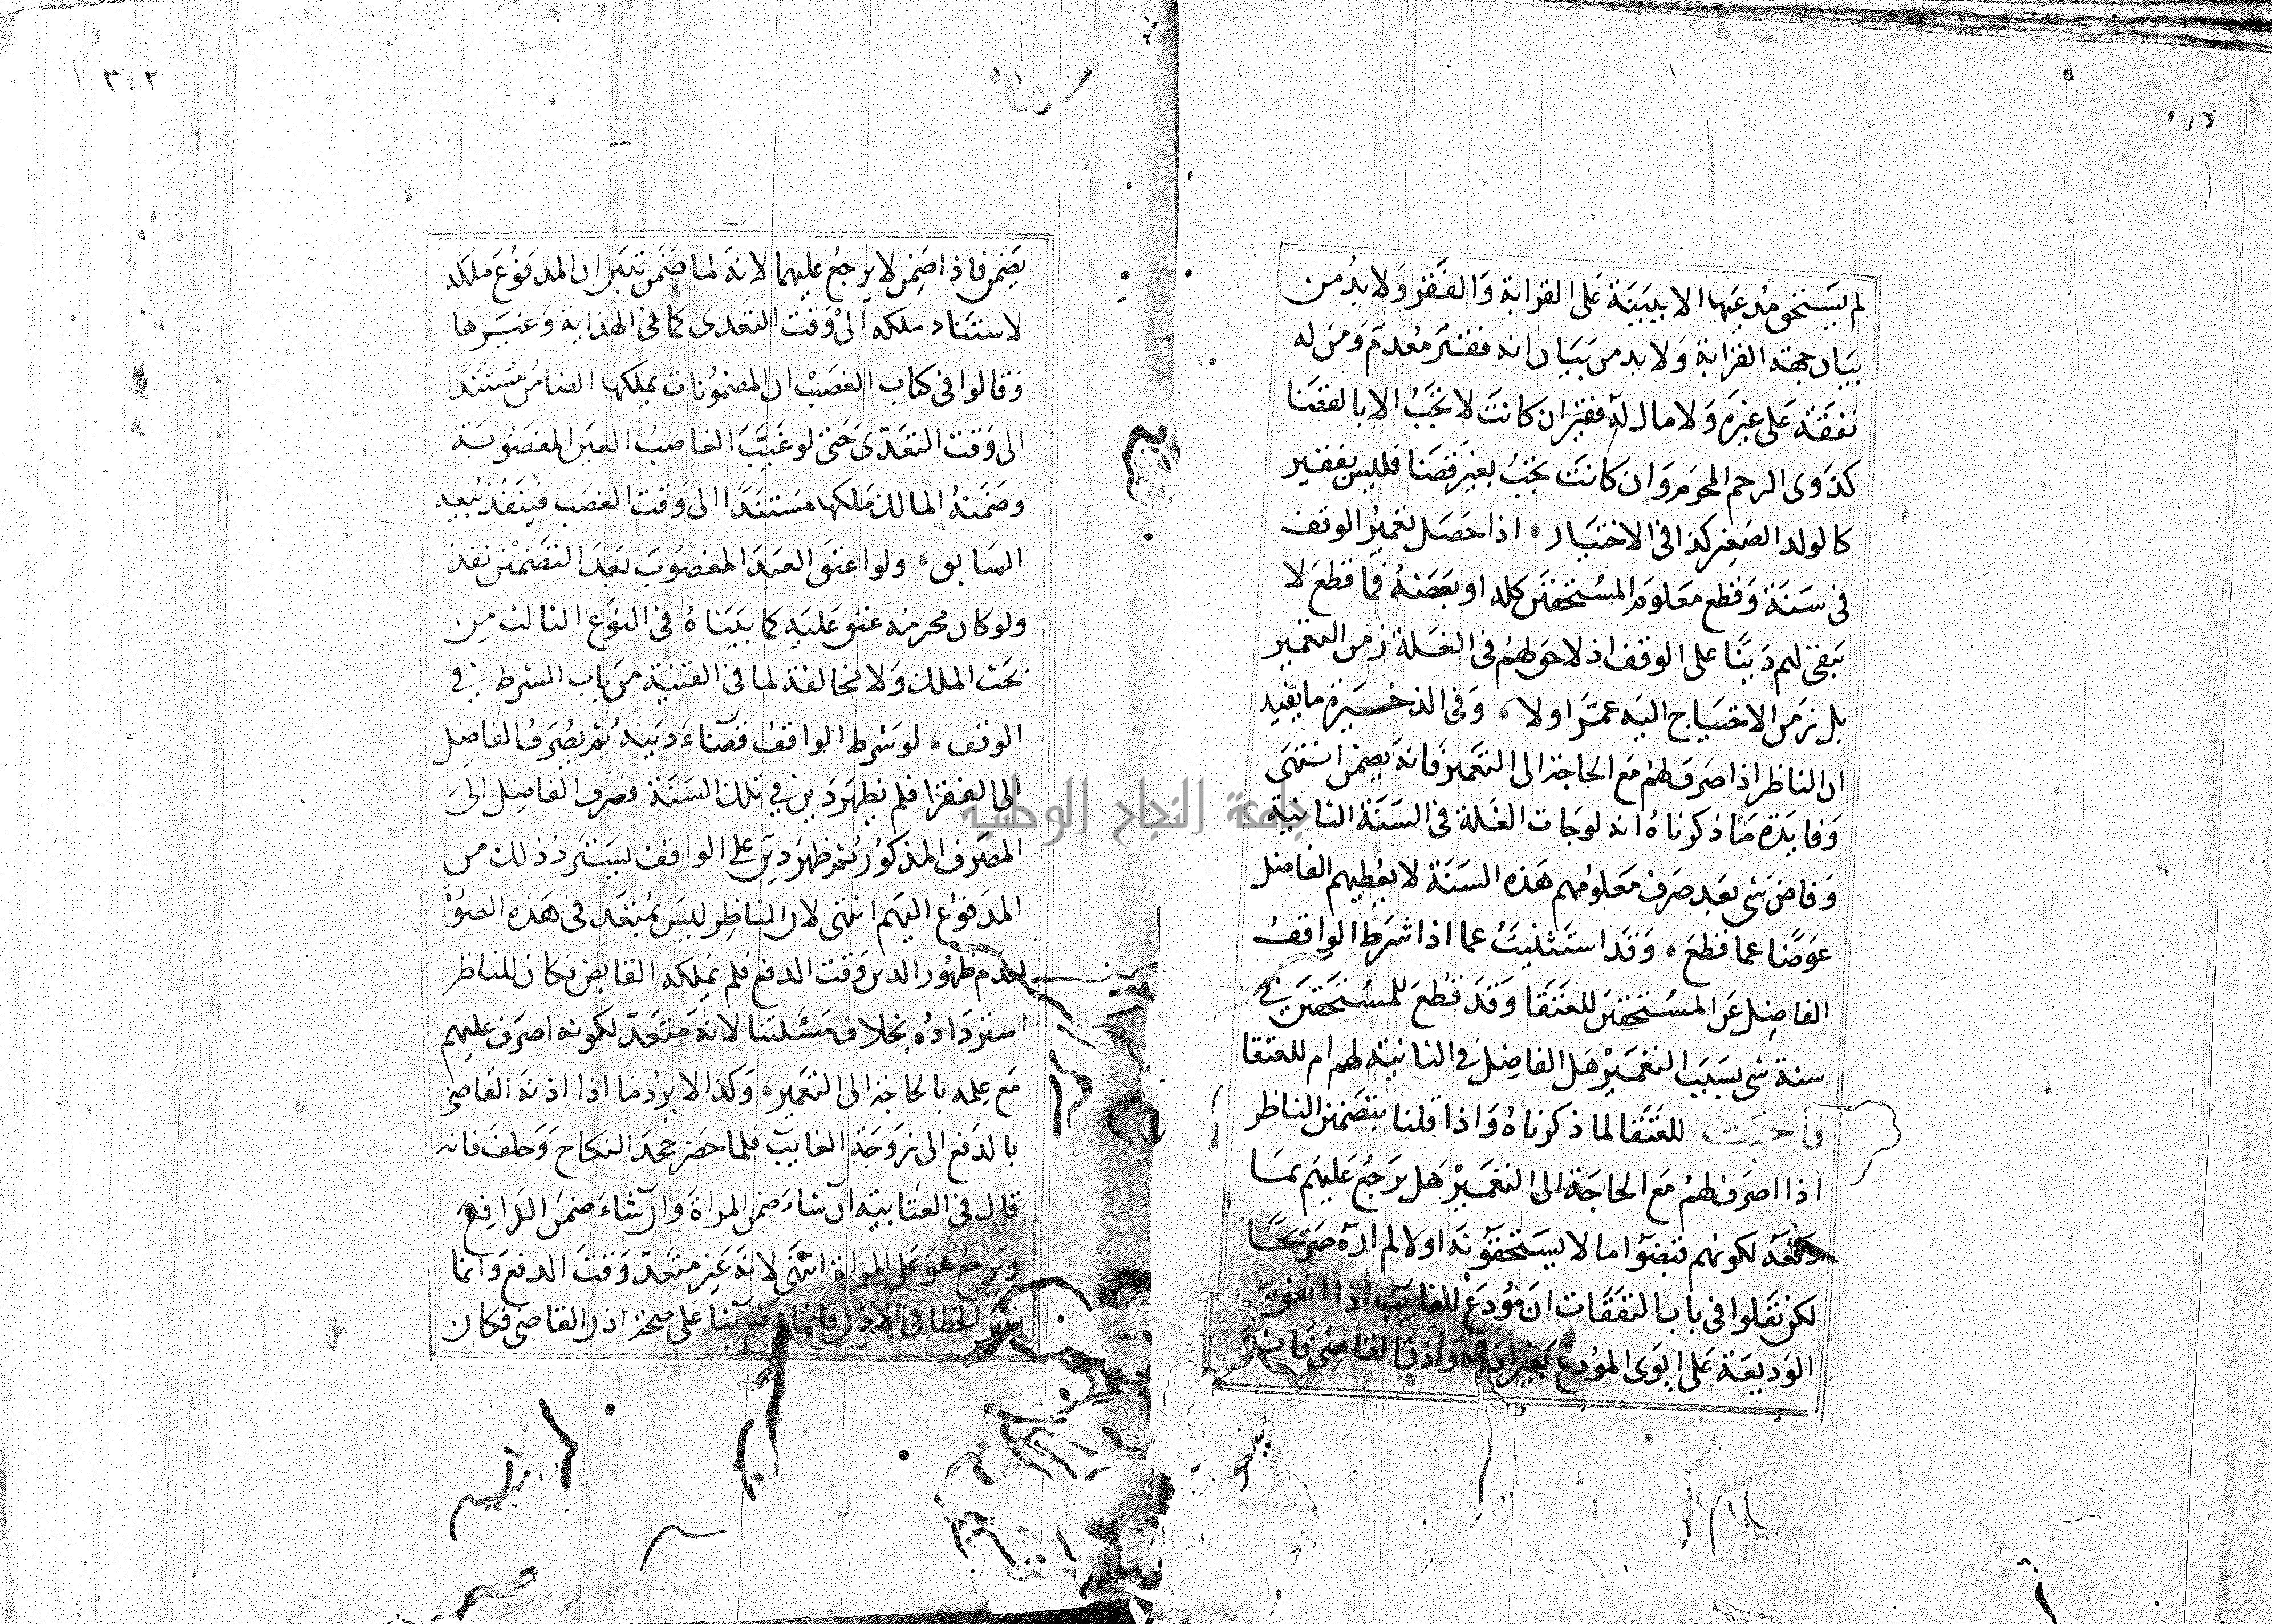 لم يستحق مدعيها الا ببينة على القرابة والفقر ولا بد من
بيان جهة القرابة ولا بد من بيان انه فقير معدم ومن له
نفقة على غيره ولا مال له فقير ان كانت لا تجب الا بالقضا
كذوى الرحم المحرم وان كانت تجب بغير قضا فليس بفقير
كالولد الصغير كذا فى الاختيار اذا حصل تعمير الوقف
فى سنة وقطع معلوم المستحقين كله او بعضه فما قطع لا
يبقى لهم دينا على الوقف اذ لا حق لهم فى الغلة زمن التعمير
بل زمن الاحتياج اليه عمر او لا وفى الذخيرة ما يفيد
ان الناظر اذا صرف لهم مع الحاجة الى التعمير فانه يضمن انتهى
وفايدة ما ذكرناه انه لو جات الغلة فى السنة الثانية
وفاض شى بعد صرف معلومهم هذه السنة لا يعطيهم الفاضل
عوضا عما قطع وقد استثنيت عما اذا شرط الواقف
الفاضل عن المستحقين للعتقا وقد قطع للمستحقين في
سنة شى بسبب التعمير هل الفاضل في الثانية لهم ام للعتقا
فاجبت للعتقا لما ذكرناه واذا قلنا بتضمين الناظر
اذا اصرف لهم مع الحاجة الى التعمير هل يرجع عليهم بما
دفعه لكونهم قبضوا ما لا يستحقونه او لا لم اره صريحا
لكن نقلوا فى باب النفقات ان مودع الغايب اذا انفق
الوديعة على ابوى المودع بغير اذنه واذن القاضى فانه
يضمن فاذا ضمن لا يرجع عليهما لانه لما ضمن تبين ان المدفوع ملكه
لاستناد ملكه الى وقت التعدى كما فى الهداية وغيرها
وقالوا فى كتاب الغصب ان المضمونات يملكها الضامن مستندا
الى وقت التعدى حتى لو غيب الغاصب العين المغصوبة
وضمنه المالك ملكها مستندا الى وقت الغصب فينفذ بيعه
السابق ولو اعتق العبد المغصوب بعد التضمين نفذ
ولو كان محرمه عتق عليه كما بيناه فى النوع الثالث من
بحث الملك ولا مخالفة لما فى القنية من باب الشرط في
الوقف لو شرط الواقف قضاء دينه ثم يصرف الفاضل
الى الفقرا فلم يظهر دين في تلك السنة فصرف الفاضل الى
المصرف المذكور ثم ظهر دين على الواقف يسترد ذلك من
المدفوع اليهم انتهى لان الناظر ليس بمتعد فى هذه الصورة
لعدم ظهور الدين وقت الدفع فلم يملكه القابض فكان للناظر
استرداده بخلاف مسئلتنا لانه متعد لكونه اصرف عليهم
مع علمه بالحاجة الى التعمير وكذا لا يرد ما اذا اذنه القاضى
بالدفع الى زوجة الغايب فلما حضر جحد النكاح وحلف فانه
قال فى العتابية ان شاء ضمن المراة وان شاء ضمن الدافع
ويرجع هو على المراة انتهى لانه غير متعد وقت الدفع وانما
ظهر الخطا فى الاذن فانما دفع بنا على صحة اذن القاضى فكان
٣٠٢
جامعة النجاح الوطنية